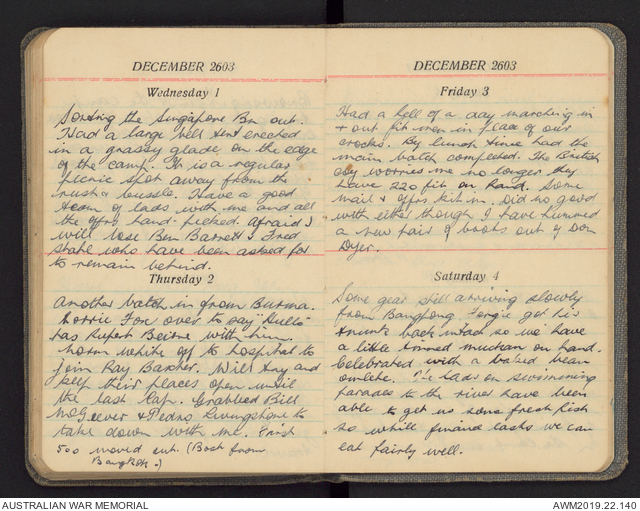 DECEMBER 2603
Wednesday 1
Sorting the Singapore Bn out.
Had a large bell tent erected
in a grassy glade on the edge
of the camp. It is a regular
picnic spot away from the
rush & bussle. Have a good
team of lads with me and all
the offrs hand-picked. Afraid I
will lose Ben Barnett & Fred
Stahl who have been asked for
to remain behind.
Thursday 2
Another batch in from Burma.
Lorrie Fone over to say "Hullo"
has Rupert Beirne with him.
Norm White off to hospital to
join Ray Baxter. Will try and
keep their places open until
the last lap. Grabbed Bill
McGeever & Pedro Livingstone to
take down with me. First
500 moved out. (Boat from
Bangkok.)
DECEMBER 2603
Friday 3
Had a hell of a day marching in
& out fit men in place of our
crocks. By lunch time had the
main batch completed. The British
Coy worries me no longer they
have 220 fit on hand. Some
mail & offrs kit in. Did no good
with either though I have hummed
a new pair of boots out of Don
Dyer.
Saturday 4
Some gear still arriving slowly
from Bangpong. Fergie got his
trunk back intact so we have
a little tinned mutton on hand.
Celebrated with a baked bean
omlete. The lads on swimming
parades to the river have been
able to get us some fresh fish
so while finance lasts we can
eat fairly well.
AUSTRALIAN WAR MEMORIAL
AWM2019.22.140